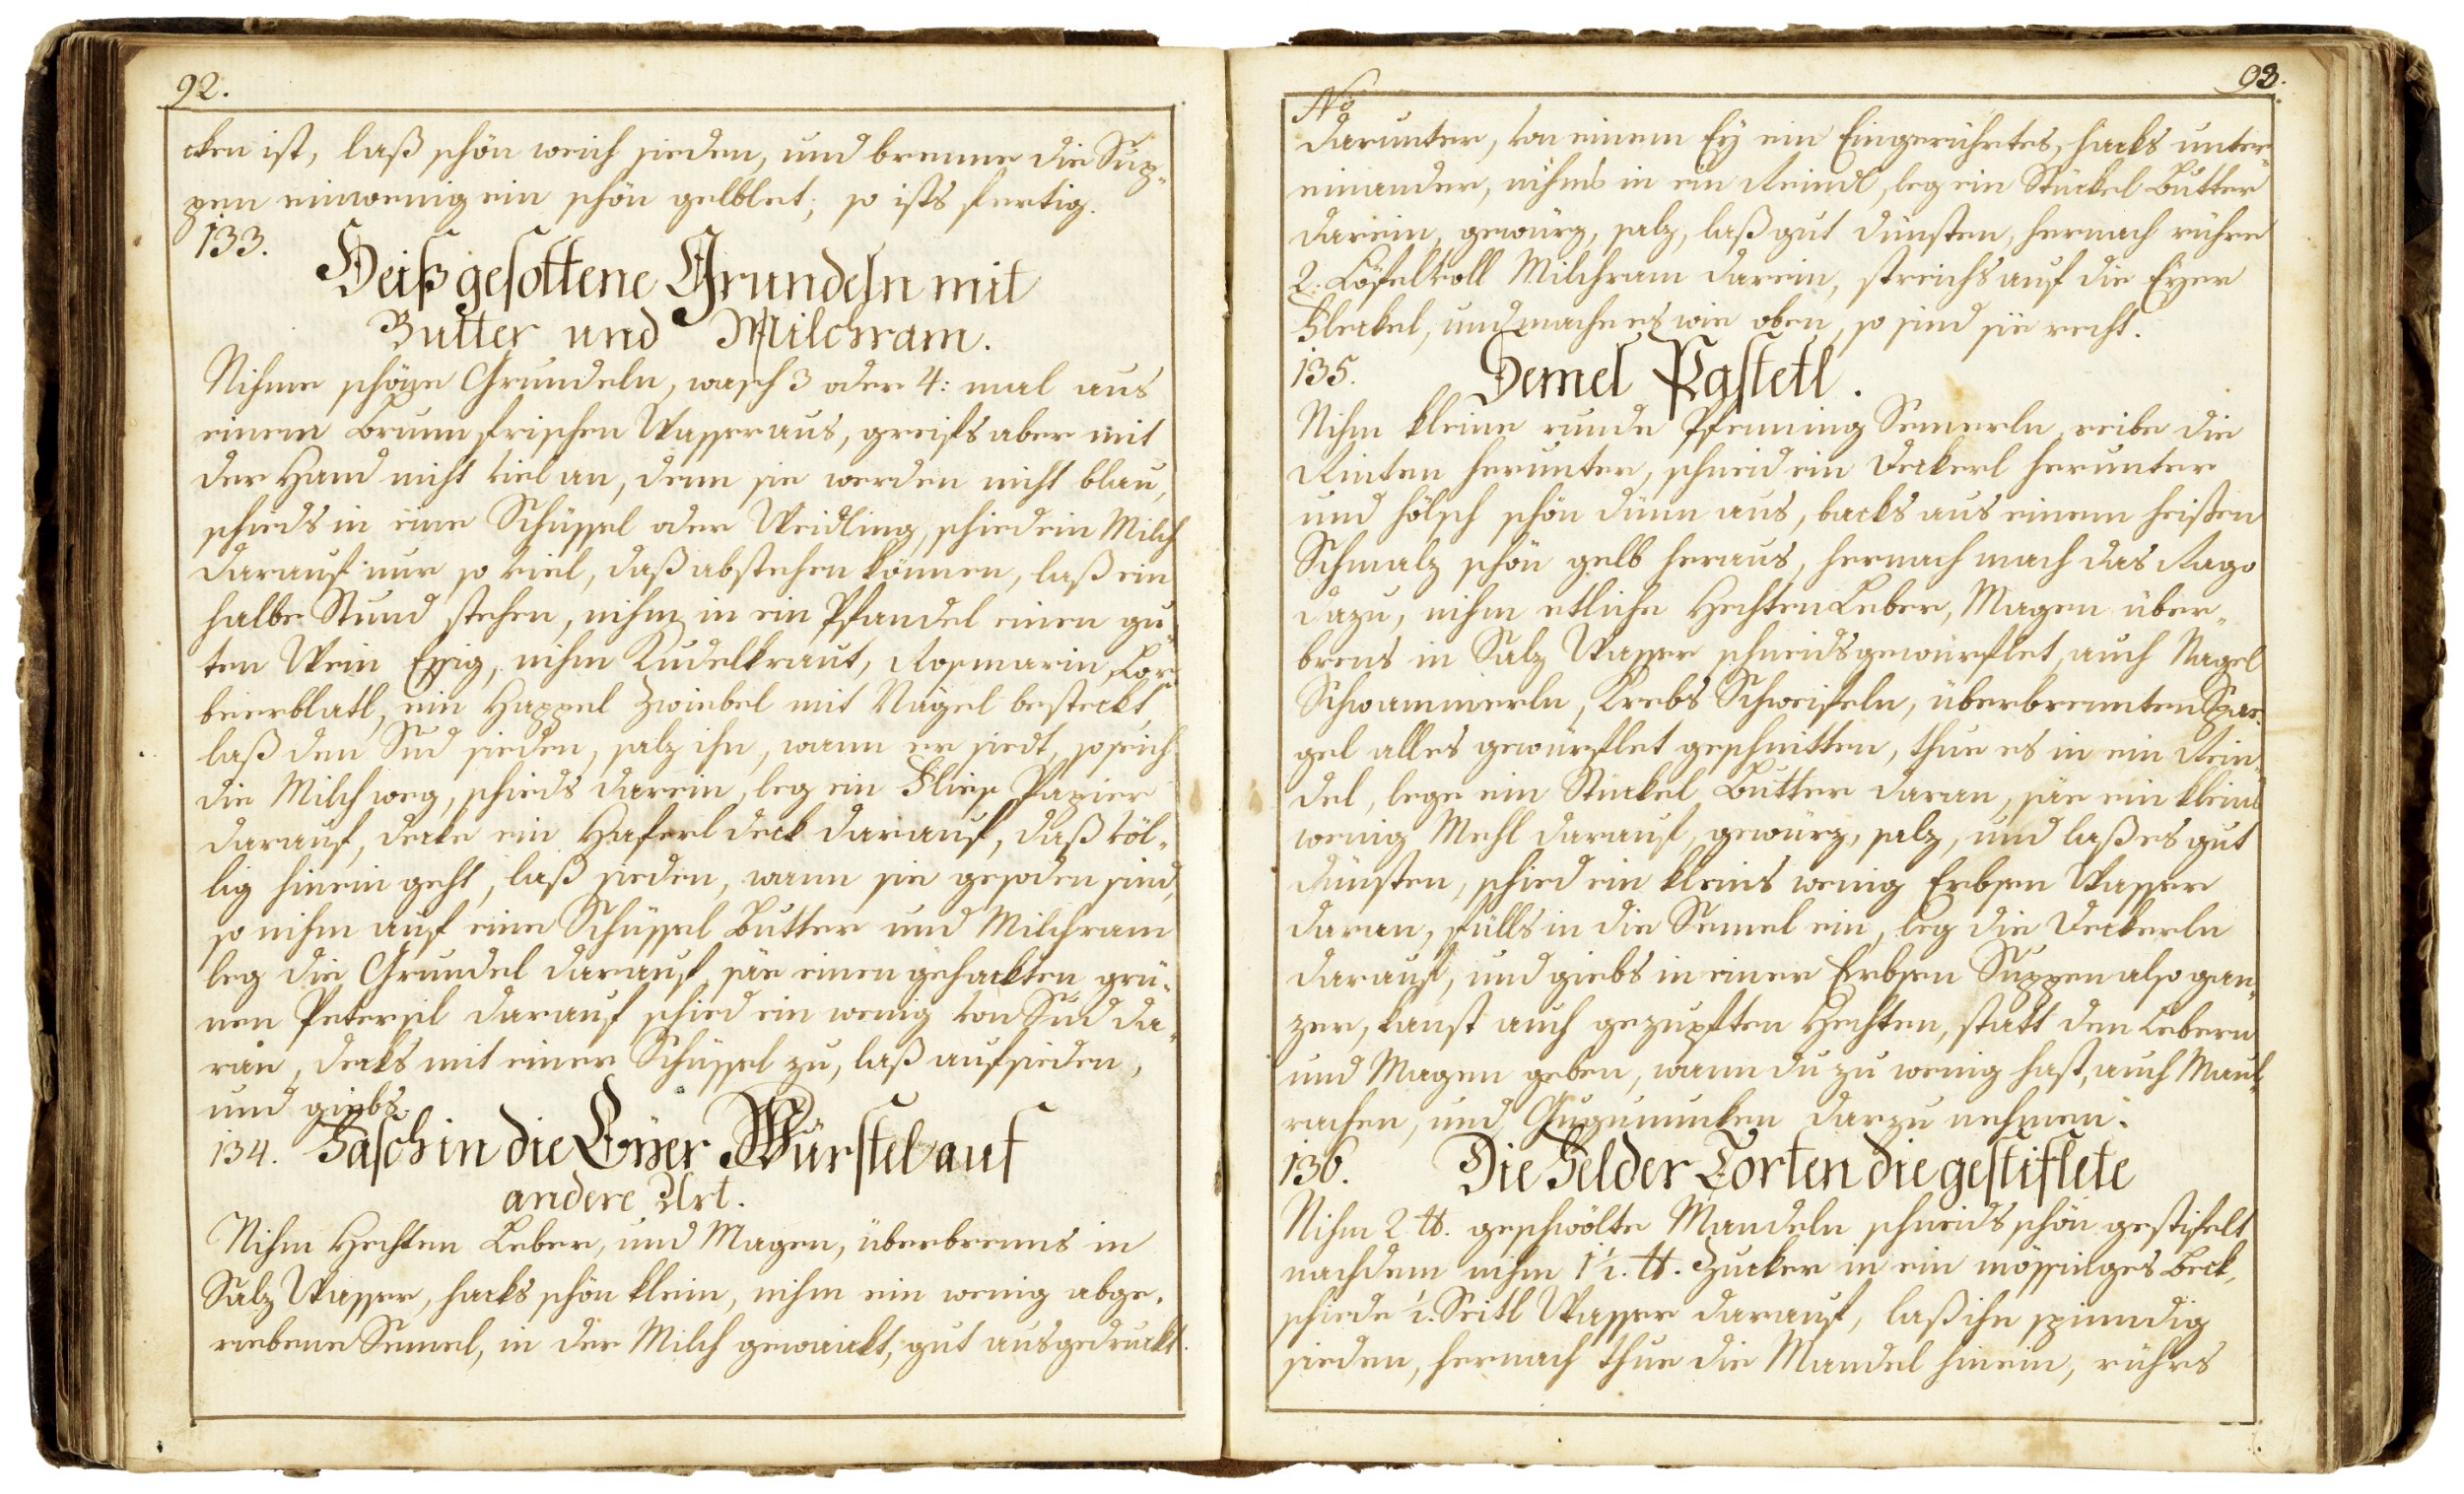 92.
cken ist, laß schön weich sieden, und brenne die Sup„
pen einwenig ein schön gelblet; so ists fertig.
133.
Heiß gesottene Grundeln mit
Butter und Milchram.
Nihme schöne Grundeln, wasch 3 oder 4: mal aus
einem Brunn frischen Wasser aus, greifs aber mit
der Hand nicht viel an, denn sie werden nicht blau,
schieds in eine Schüssel oder Weidling, schied ein Milch
darauf nur so viel, daß abstehen können, laß ein
halbe Stund stehen, nihm in ein Pfandel einen gu„
ten Wein Essig, nihm Kudelkraut, Rosmarin, Lor„
beerblatl, ein Happel Zwiebel mit Nägel besteckt,
laß den Sud sieden, salz ihn, wann er siedt, so seich
die Milch weg, schieds darein, leg ein Fließ Papier
darauf, decke ein Haferl deck darauf, daß völ„
lig hinein geht, laß sieden, wann sie gesoden sind,
so nihm auf eine Schüssel Butter und Milchram
leg die Grundel darauf, säe einen gehackten grü„
nen Petersil darauf schied ein wenig von Sud da„
ran, decks mit einer Schüssel zu, laß aufsieden,
und giebs.
134. Fasch in die Eyer Würstel auf
andere Art.
Nihm Hechten Leber, und Magen, überbrenns in
Salz Wasser, hacks schön klein, nihm ein wenig abge„
riebene Semel, in der Milch geweickt, gut ausgedruckt.
93.
No
darunter, von einem Ey ein Eingerührtes, hacks unter„
einander, nihms in ein Reindl, leg ein Stückel Butter
darein, gewürz, salz, laß gut dünsten, hernach rühre
2. Löfelvoll Milchram darein, streichs auf die Eyer
Fleckel, und mache es wie oben, so sind sie recht.
135.
Semel Pastetl.
Nihm kleine runde Pfenning Semerln, reibe die
Rinten herunter, schneid ein Deckerl herunter
und hölsch schön dünn aus, backs aus einem heißen
Schmalz schön gelb heraus, hernach mach das Rago
dazu, nihm etliche Hechten Leber, Magen über„
brens in Salz Wasser schneids gewürflet, auch Nagel
Schwammerln, Krebs Schweifeln, überbrennten Spar„
gel alles gewürflet geschnitten, thue es in ein Rein„
del, lege ein Stückel Butter daran, säe ein kleins
wenig Mehl darauf, gewürz, salz, und laß es gut
dünsten, schied ein kleins wenig Erbsen Wasser
daran, fülls in die Semel ein, leg die Deckerln
darauf, und giebs in einer Erbsen Suppen also gan„
zer, kanst auch gezupften Hechten, statt den Lebern
und Magen geben, wann du zu wenig hast, auch Maul„
rachen, und Gugumuken darzu nehmen.
136.
Die Felder Torten die gestiflete
Nihm 2 ℔. geschwölte Mandeln schneids schön gestifelt
nachdem nihm 1 1/2. ℔. Zucker in ein mössinges Beck,
schiede 1/2. Seitl Wasser darauf, laß ihn spinndig
sieden, hernach thue die Mandel hinein, rührs